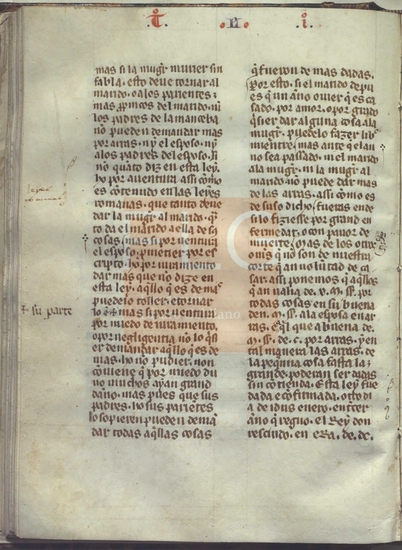 T. II. i.
mas si la mugier muriere sin
fabla, esto deue tornar al
marido, o a los parientes
mas proximos del marido, ni
los padres de la manceba
no pueden demandar mas
por arras, ny el esposo, ny
a los padres del esposo. si
no quanto diz en esta ley.
ho por auentura assi como
es contenido en las leyes
romanas, que tanto deue
dar la mugier al marido, q̃
to da el marido a ella de su
cosas, mas si por uentura
el esposo, primer por es
cripto, ho por iuramiento
dar mas que no dize en
esta ley, aq̃llo que es de mas
puedelo toller, e tornar
por miedo de iuramiento,
o por negligentia no lo q̃si
er demandar aq̃llo q̃ es de
mas, ho no pudier, non
conuiene q̃ por miedo du
no muchos ayan grand
danno, mas pues que sus
padres, ho sus parientes
lo sopieren pueden demã
dar todas aq̃llas cosas
q̃ fueron de mas dadas.
Por esto, si el marido depu
es q̃ un anno ouier q̃ es ca
sado, por amor, o por grado
q̃sier dar alguna cosa a la
mugier, puedelo fazer libre
mientre, mas ante q̃ el anno
sea passado, ni el marido
a la mugier, ni la mugier al
marido no puede dar mas
de las arras, assi como es
de suso dicho, fueras ende
si lo fiziesse por grand en
fermedat, o con pauor de
muerte.
corte q̃ an uoluntad de ca
sar, assi ponemos q̃ aq̃llos
todas cosas en su buena
a la esposa en ar
ras. E q̃l que a buena de
por arras, y en
tal manera las arras, de
la pequenna cosa fasta la
grande, poderan ser dadas
sin contienda. Esta ley fue
dada e confirmada, otto di
a de idus enero, en tercer
anno q̃ regno, el Rey don
rescindo, en era. de. dc.
su parte